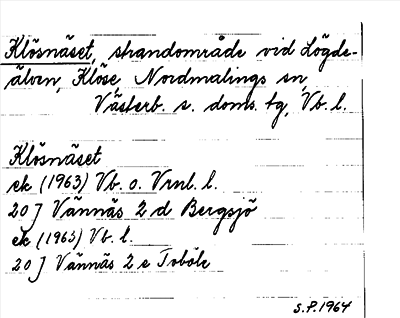 Klösnäset, strandområde vid Lögde-
älven, Klöse, Nordmalings sn,
Västerb. s. doms. tg, Vb. l.
Klösnäset
ek (1963) Vb. o. Vrnl. l.
20 J Vännäs 2 d Bergsjö
ek (1963) Vb. l.
20 J Vännäs 2 e Toböle
S.P. 1964